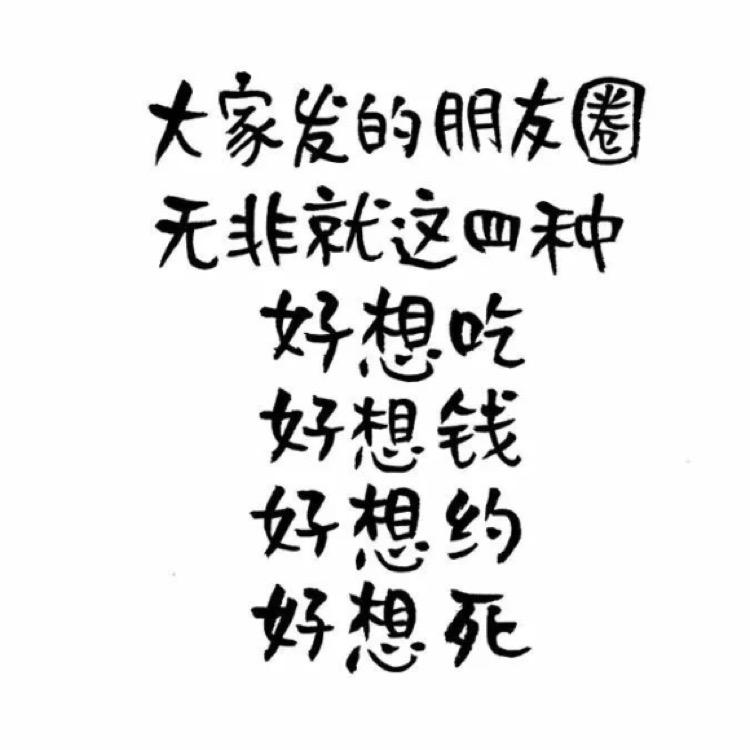 大家发的朋友圈
无非就这四种
好想吃
好想钱
好想约
好想死